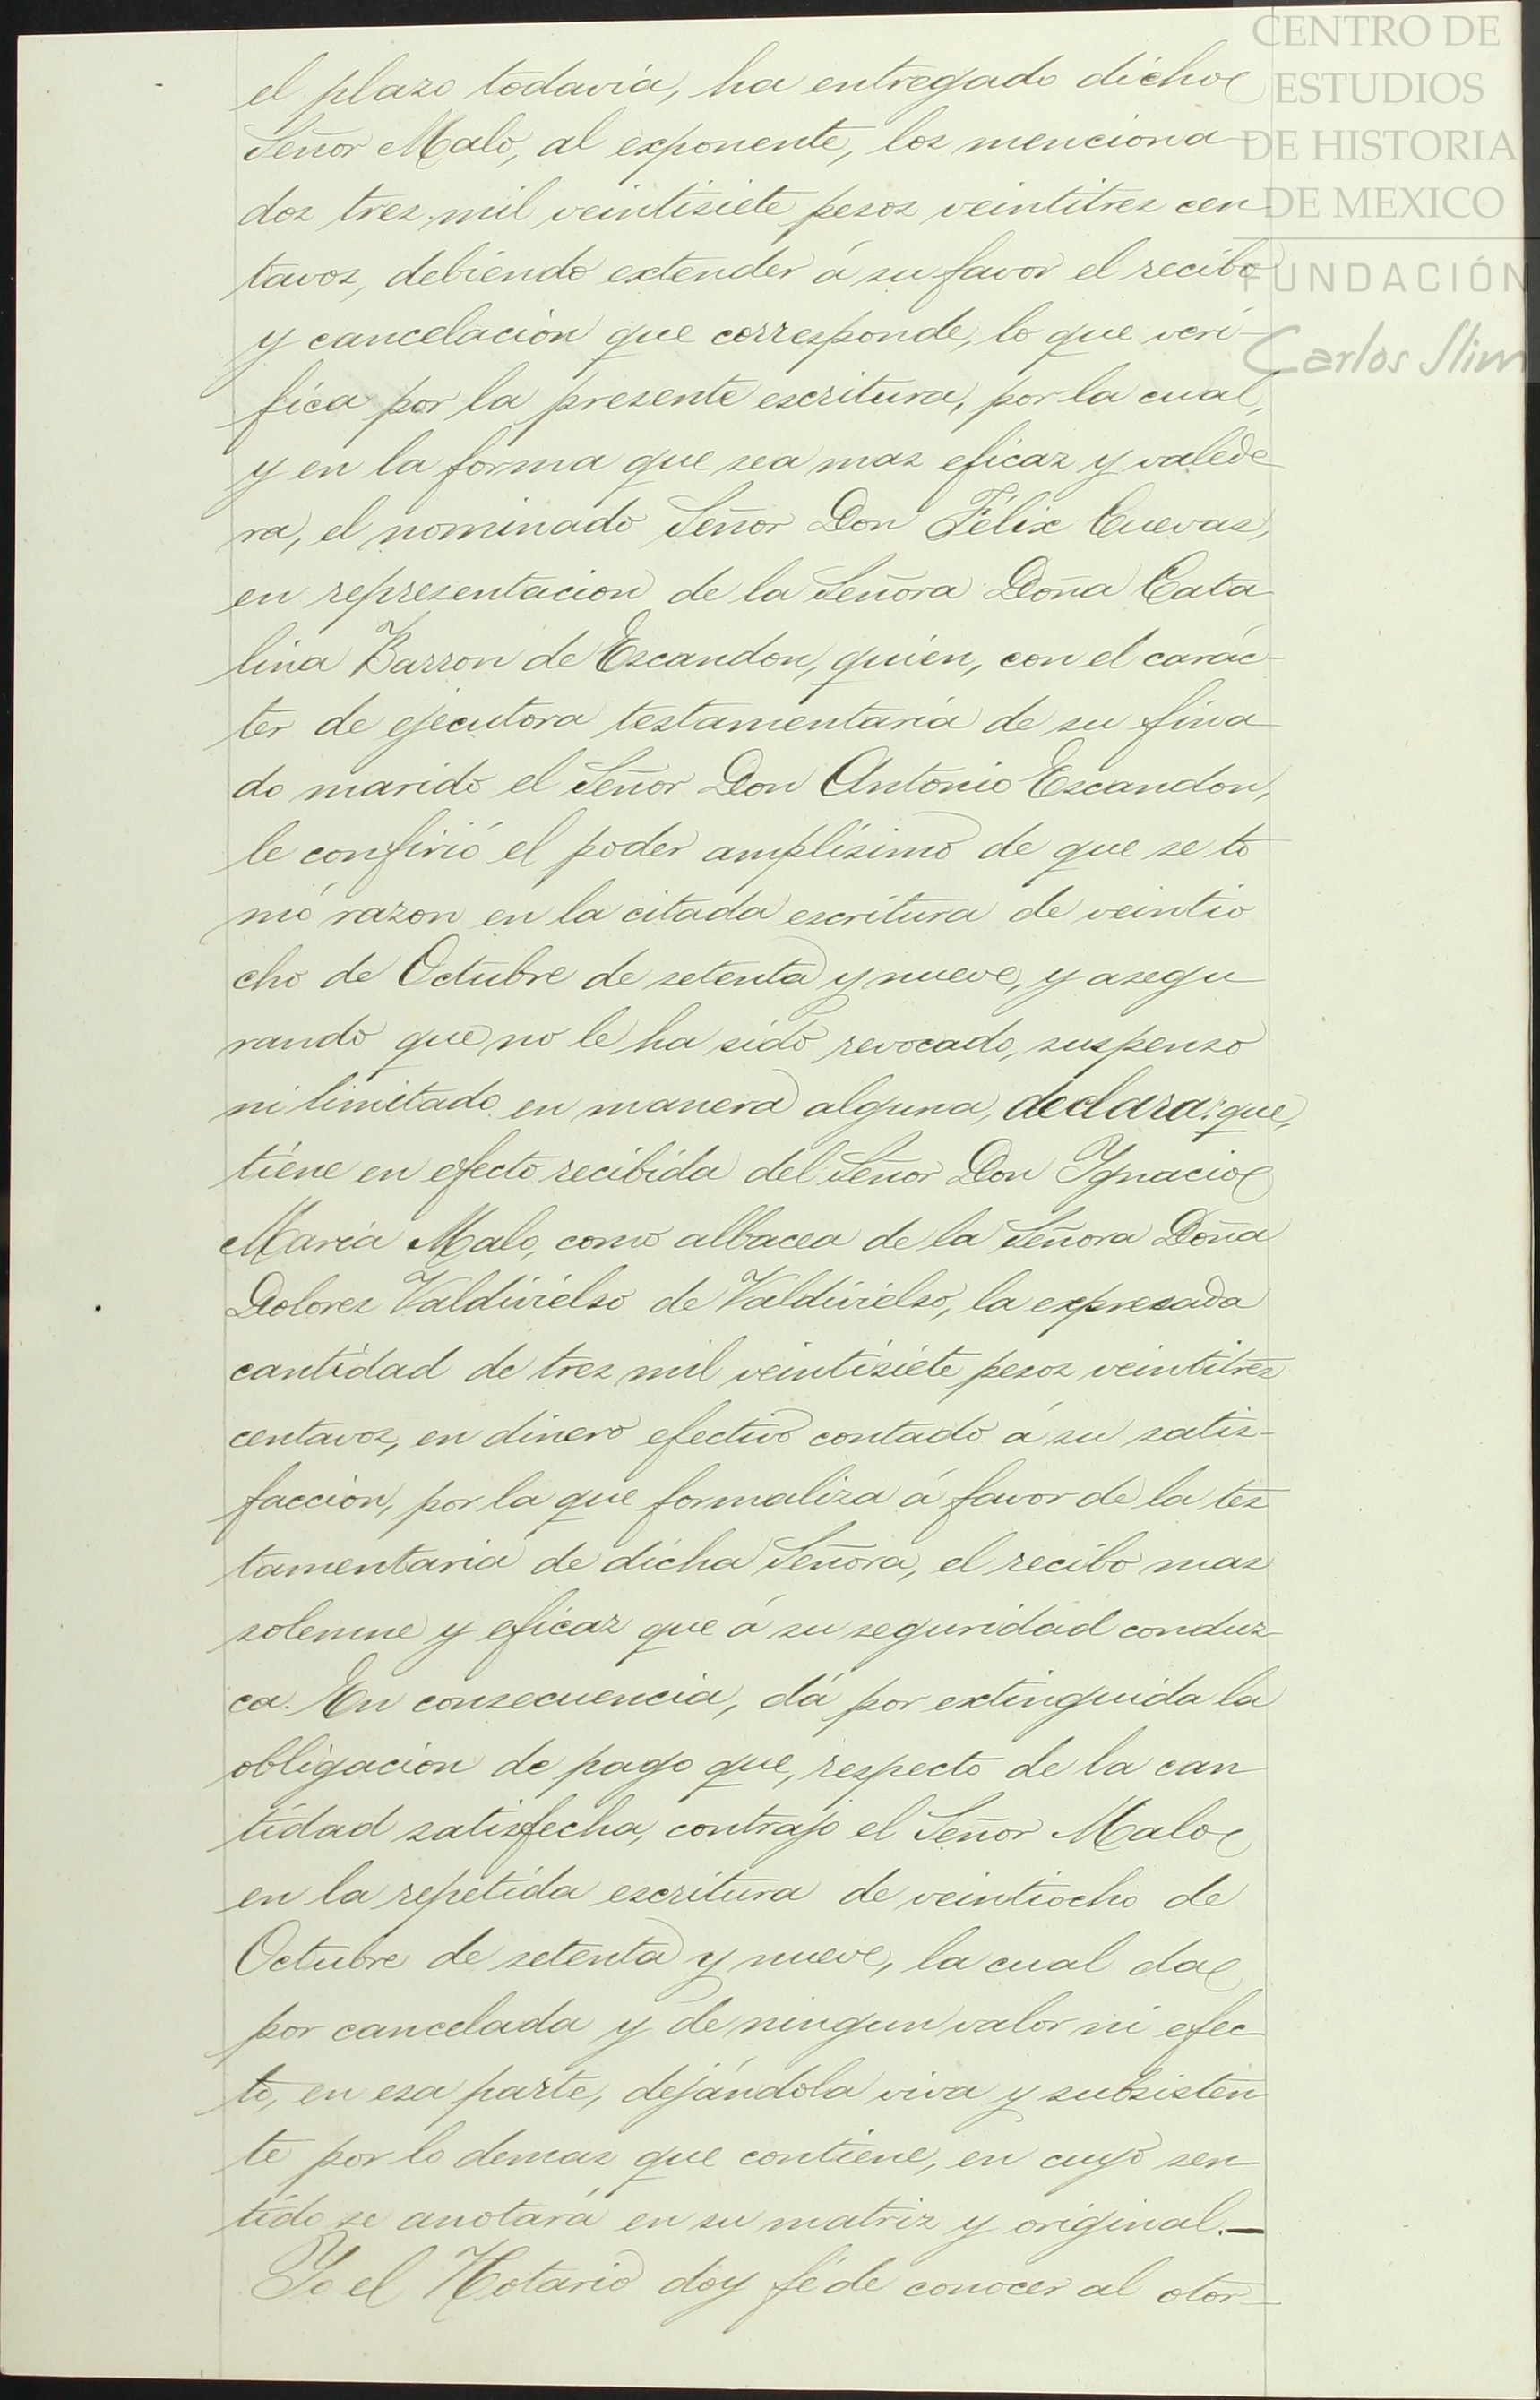 CENTRO DE
ESTUDIOS
DE HISTORIA
DE MEXICO
FUNDACIÓN
Carlos Slim
el plazo todavía, ha entregado dicho
Señor Malo, al exponente, los menciona
dos tres mil veintisiete pesos veintitres cen
tavos, debiendo extender á su favor el recibo
y cancelacion que corresponde, lo que veri-
fica por la presente escritura, por la cual,
y en la forma que sea mas eficaz y valede
ra, el nominado Señor Don Félix Cuevas,
en representacion de la Señora Doña Cata
lina Barron de Escandon, quien, con el carác-
ter de ejecutora testamentaria de su fina
do marido el Señor Don Antonio Escandon,
le confirió el poder amplísimo de que se to
mó razon en la citada escritura de veintio
cho de Octubre de setenta y nueve, y asegu
rando que no le ha sido revocado, suspenso
ni limitado en manera alguna, declara: que,
tiene en efecto recibida del Señor Don Ygnacio
María Malo, como albacea de la Señora Doña
Dolores Valdivielso de Valdivielso, la expresada
cantidad de tres mil veintisiete pesos veintitres
centavos, en dinero efectivo contado á su satis-
faccion, por la que formaliza á favor de la tes
tamentaria de dicha Señora, el recibo mas
solemne y eficaz que á su seguridad conduz-
ca. En consecuencia, dá por extinguida la
obligacion de pago que, respecto de la can
tidad satisfecha, contrajo el Señor Malo
en la repetida escritura de veintiocho de
Octubre de setenta y nueve, la cual da
por cancelada y de ningun valor ni efec
to, en esa parte, dejándola viva y subsisten
te por lo demas que contiene, en cuyo sen
tido se anotará en su matriz y original.—
Yo el Notario doy fé de conocer al otor-